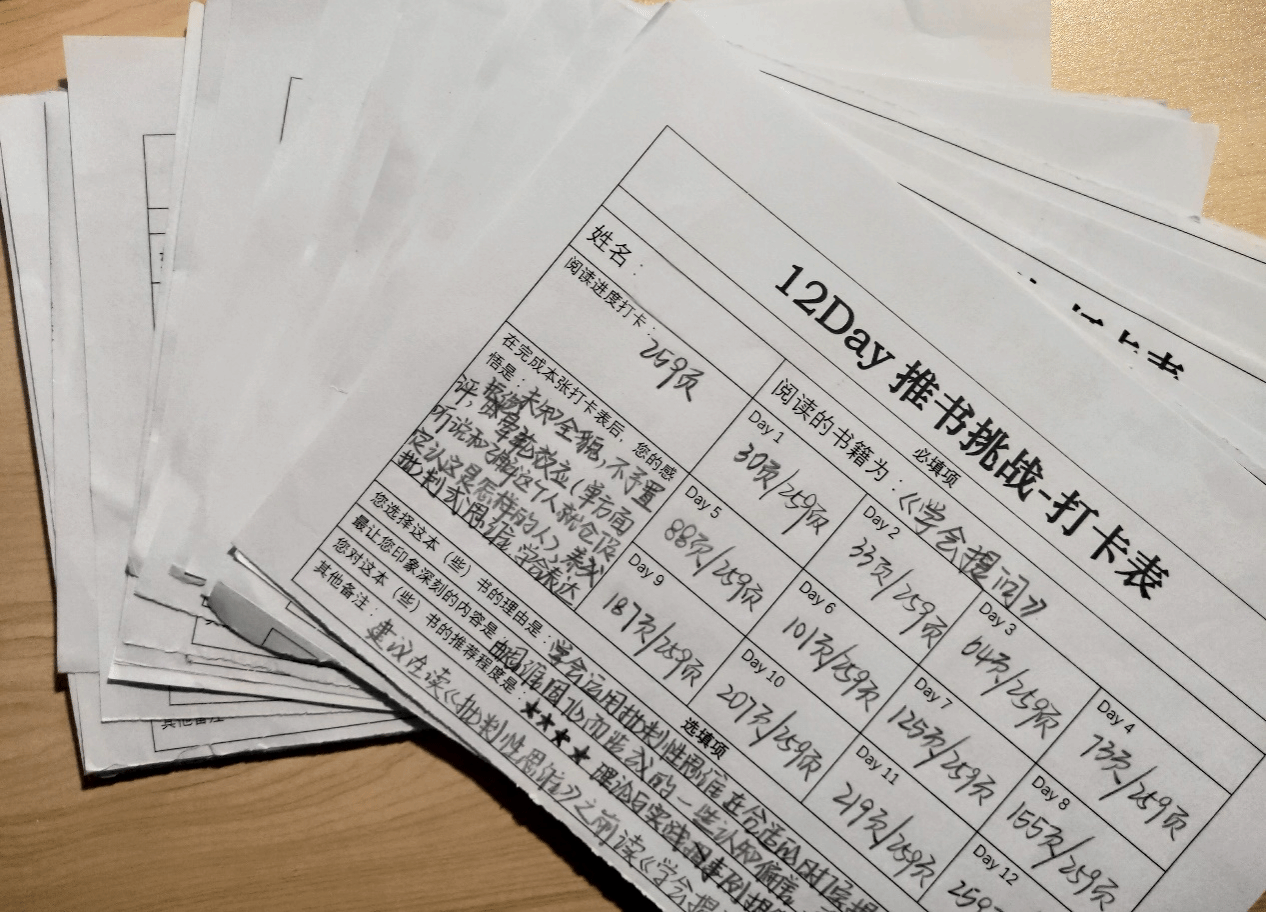 12Day 推书挑战-打卡表
必填项
姓名：
阅读的书籍为：《学会提问》
阅读进度打卡：
259页
Day 1
30页/259页
Day 2
33页/259页
Day 3
64页/259页
Day 4
73页/259页
Day 5
88页/259页
Day 6
101页/259页
Day 7
125页/259页
Day 8
155页/259页
Day 9
187页/259页
Day 10
207页/259页
Day 11
219页/259页
Day 12
259
在完成本张打卡表后，您的感
悟是：未知全貌，不予置
评，
听说和了解这个人就会假
定认这是怎样的人）养成
批判式思维，学会表达
选填项
您选择这本（些）书的理由是：学会运用批判性思维在合适的时
最让您印象深刻的内容是：因 而造成的一些认知偏
您对这本（些）书的推荐程度是：★★★★★
其他备注：建议在读《批判性思维》之前读《学会提
其他备注